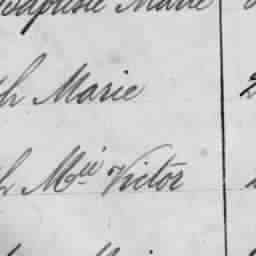 Baptiste Marie
h Marie
h Mie Victor